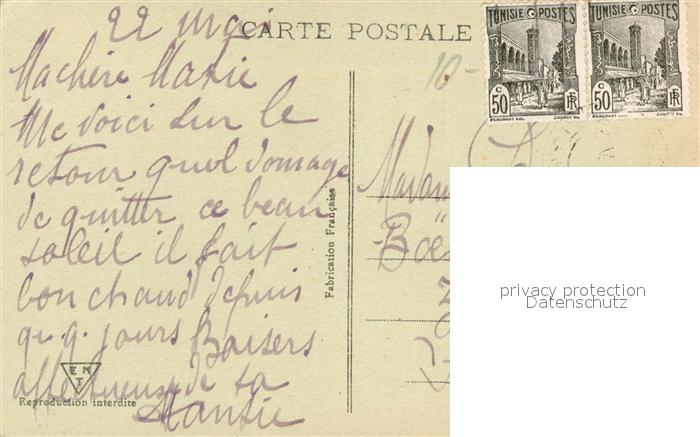 22 mai
CARTE POSTALE
Ma chère Marie
Me voici sur le
retour quel domage
de quitter ce beau
soleil il fait
bon chaud depuis
qq. jours Baisers
affectueux de ta
10-
TUNISIE POSTES
50 C
RF
TUNISIE POSTES
50 C
RF
Madam
Fabrication Française
EMT
Reproduction interdite
privacy protection
Datenschutz